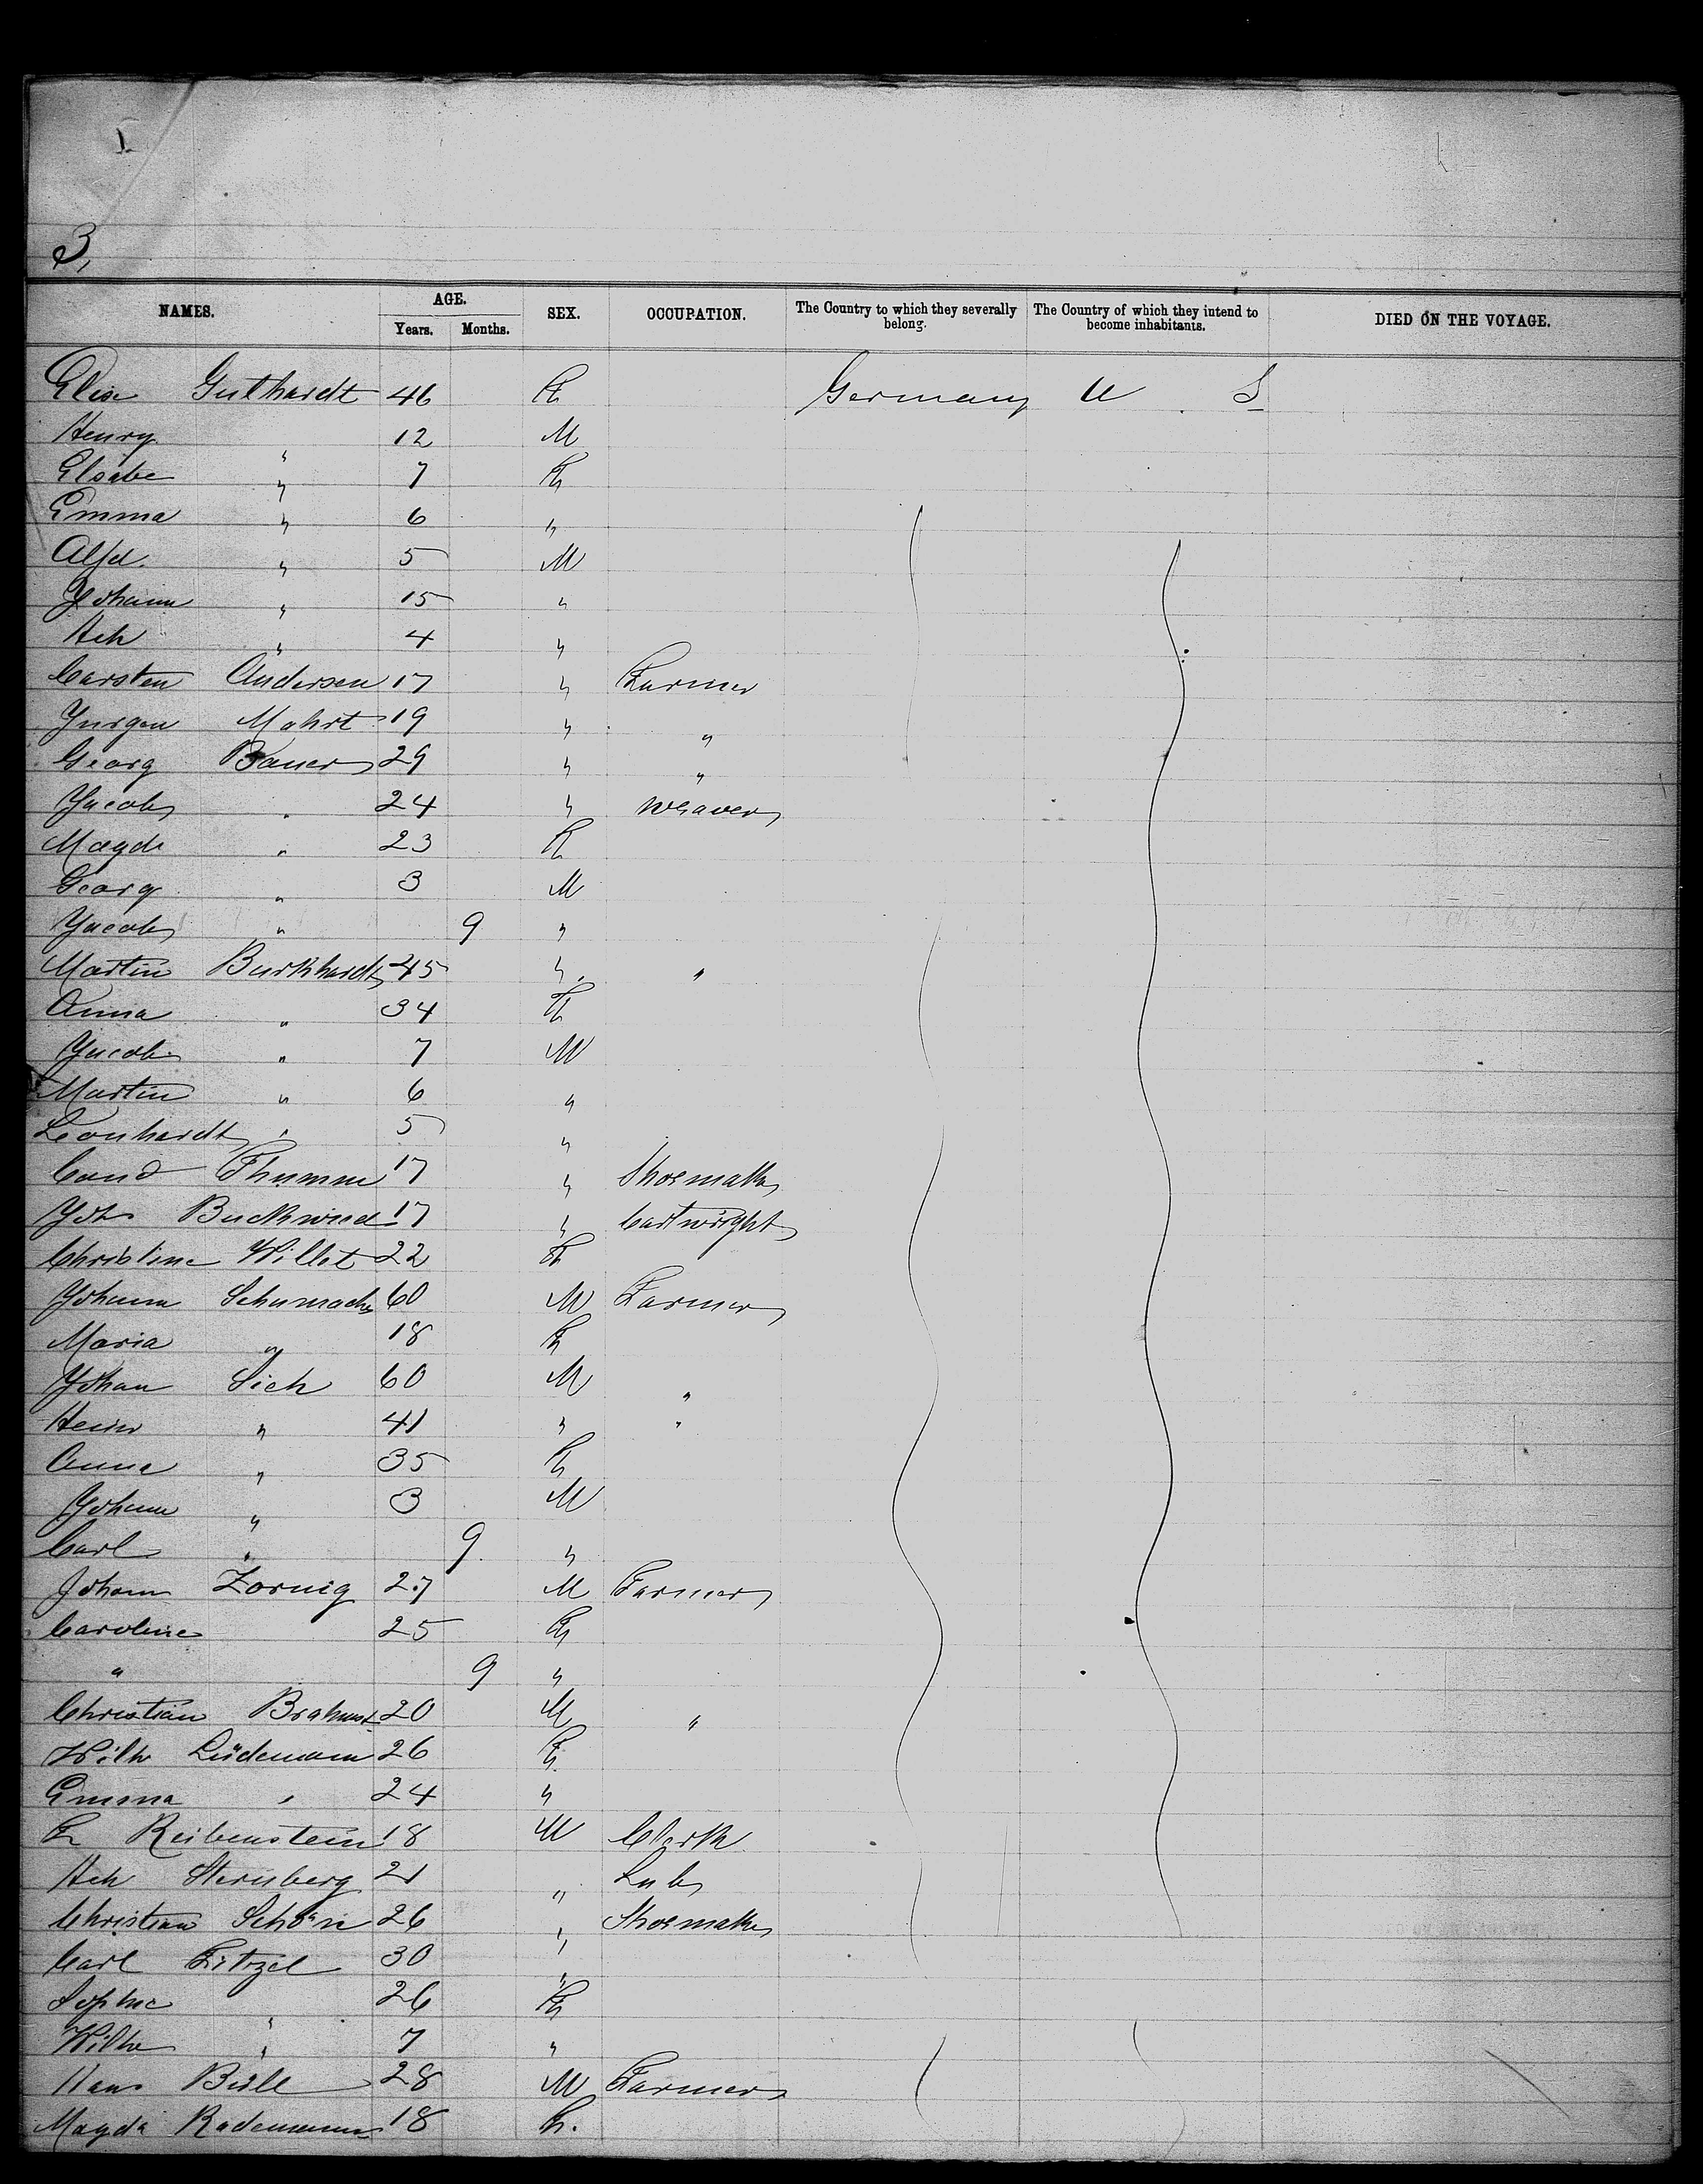 3,
NAMES. AGE. Years. Months. SEX. OCCUPATION. The Country to which they severally belong. The Country of which they intend to become inhabitants. DIED ON THE VOYAGE.
Elise Guthardt 46 F Germany U S
Henry " 12 M
Elsabe " 7 F
Emma " 6 "
Alfd. " 5 M
Johann " 15 "
Hch " 4 "
Carsten Andersen 17 " Farmer
Jurgen Mohrt 19 " "
Georg Bauer 29 " "
Jacob " 24 " Weaver
Magde " 23 F
Georg " 3 M
Jacob " 9 "
Martin Burkhardt 45 " "
Anna " 34 F
Jacob " 7 M
Martin " 6 "
Leonhardt " 5 "
Conrd Thumm 17 " Shoemaker
Joh Buckwied 17 " Cartwright
Christine Willet 22 F
Johann Schumacher 60 M Farmer
Maria " 18 F
Johan Sich 60 M "
Heinr " 41 " "
Anna " 35 F
Johann " 3 M
Carl " 9 "
Johann Zornig 27 M Farmer
Caroline 25 F
" 9 "
Christian Brahmst 20 M "
Wilh Lüdemann 26 F
Emma " 24 "
F Reibenstein 18 M Clerk
Hch Sternberg 21 " Lab
Christian Schön 26 " Shoemaker
Carl Fitzel 30 "
Sophie " 26 F
Wilhe " 7 "
Hans Büll 28 M Farmer
Magda Rademann 18 F.